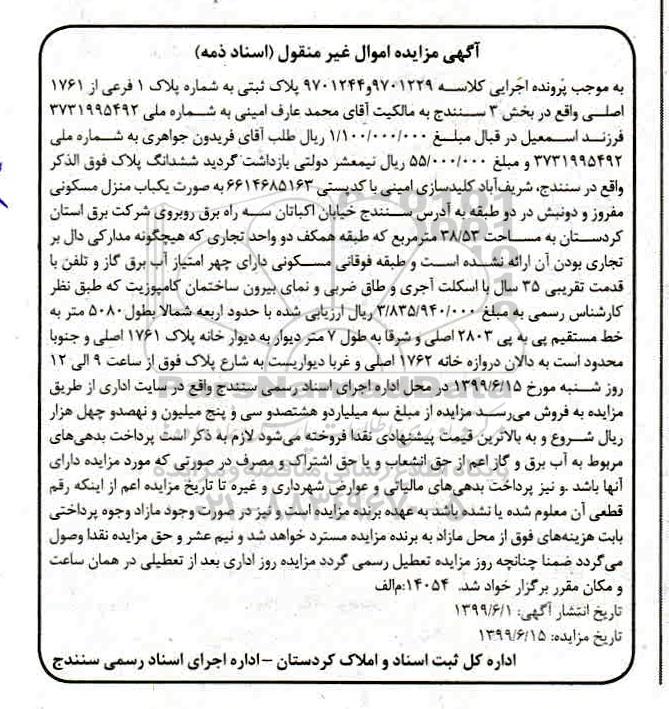 آگهی مزایده اموال غیر منقول (اسناد ذمه)
به موجب پرونده اجرایی کلاسه ۹۷۰۱۲۲۹و۹۷۰۱۲۴۴ پلاک ثبتی به شماره پلاک ۱ فرعی از ۱۷۶۱
اصلی واقع در بخش ۳ سنندج به مالکیت آقای محمد عارف امینی به شماره ملی ۳۷۳۱۹۹۵۴۹۲
فرزند اسمعیل در قبال مبلغ ۱/۱۰۰/۰۰۰/۰۰۰ ریال طلب آقای فریدون جواهری به شماره ملی
۳۷۳۱۹۹۵۴۹۲ و مبلغ ۵۵/۰۰۰/۰۰۰ ریال نیمعشر دولتی بازداشت گردید ششدانگ پلاک فوق الذکر
واقع در سنندج، شریف‌آباد کلیدسازی امینی با کدپستی ۶۶۱۴۶۸۵۱۶۳ به صورت یکباب منزل مسکونی
مفروز و دونبش در دو طبقه به آدرس سنندج خیابان اکباتان سه راه برق روبروی شرکت برق استان
کردستان به مساحت ۳۸/۵۳ مترمربع که طبقه همکف دو واحد تجاری که هیچگونه مدارکی دال بر
تجاری بودن آن ارائه نشده است و طبقه فوقانی مسکونی دارای چهر امتیاز آب برق گاز و تلفن با
قدمت تقریبی ۳۵ سال با اسکلت آجری و طاق ضربی و نمای بیرون ساختمان کامپوزیت که طبق نظر
کارشناس رسمی به مبلغ ۳/۸۳۵/۹۴۰/۰۰۰ ریال ارزیابی شده با حدود اربعه شمالا بطول ۵۰۸۰ متر به
خط مستقیم پی به پی ۲۸۰۳ اصلی و شرقا به طول ۷ متر دیوار به دیوار خانه پلاک ۱۷۶۱ اصلی و جنوبا
محدود است به دالان دروازه خانه ۱۷۶۲ اصلی و غربا دیواریست به شارع پلاک فوق از ساعت ۹ الی ۱۲
روز شنبه مورخ ۱۳۹۹/۶/۱۵ در محل اداره اجرای اسناد رسمی سنندج واقع در سایت اداری از طریق
مزایده به فروش می‌رسد مزایده از مبلغ سه میلیاردو هشتصدو سی و پنج میلیون و نهصدو چهل هزار
ریال شروع و به بالاترین قیمت پیشنهادی نقدا فروخته می‌شود لازم به ذکر است پرداخت بدهی‌های
مربوط به آب برق و گاز اعم از حق انشعاب و یا حق اشتراک و مصرف در صورتی که مورد مزایده دارای
آنها باشد .و نیز پرداخت بدهی‌های مالیاتی و عوارض شهرداری و غیره تا تاریخ مزایده اعم از اینکه رقم
قطعی آن معلوم شده یا نشده باشد به عهده برنده مزایده است و نیز در صورت وجود مازاد وجوه پرداختی
بابت هزینه‌های فوق از محل مازاد به برنده مزایده مسترد خواهد شد و نیم عشر و حق مزایده نقدا وصول
می‌گردد ضمنا چنانچه روز مزایده تعطیل رسمی گردد مزایده روز اداری بعد از تعطیلی در همان ساعت
و مکان مقرر برگزار خواد شد. ۱۴۰۵۴:م‌الف
تاریخ انتشار آگهی: ۱۳۹۹/۶/۱
تاریخ مزایده: ۱۳۹۹/۶/۱۵
اداره کل ثبت اسناد و املاک کردستان –اداره اجرای اسناد رسمی سنندج
ParsNamadData